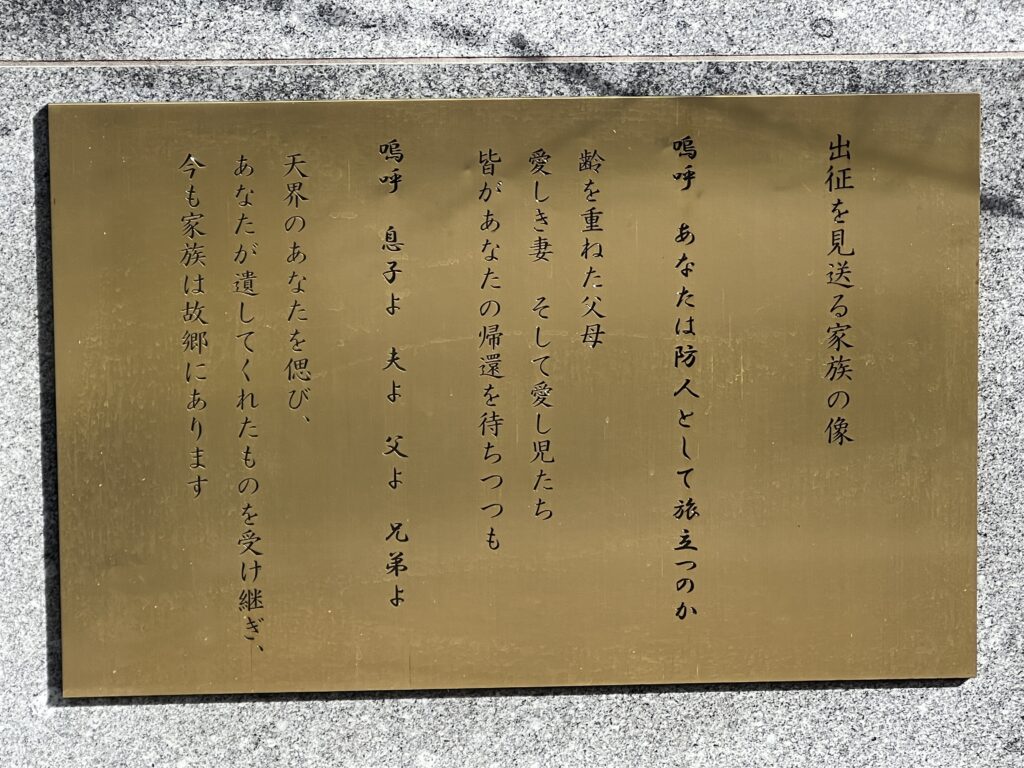 出征を見送る家族の像
嗚呼　あなたは防人として旅立つのか
齢を重ねた父母
愛しき妻　そして愛し児たち
皆があなたの帰還を待ちつつも
嗚呼　息子よ　夫よ　父よ　兄弟よ
天界のあなたを偲び、
あなたが遺してくれたものを受け継ぎ、
今も家族は故郷にあります